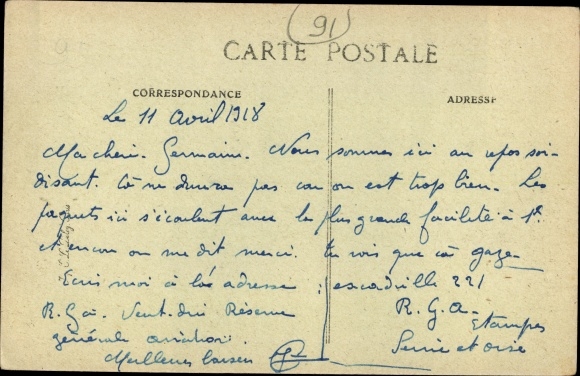 91
CARTE POSTALE
CORRESPONDANCE
ADRESSE
Le 11 Avril 1918
Ma cherie. Germaine. Nous sommes ici au repos soi-
disant. Cà ne durera pas car on est trop bien. Les
paquets ici s'écoulent avec la plus grande facilité à 1f.
et encore on me dit merci. tu vois que cà gaze
Ecris moi à l'adresse : escadrille 221
R. G. A.
R. G. A. Veut dire Réserve
Etampes
générale aviation.
Seine et oise
Meilleurs baisers